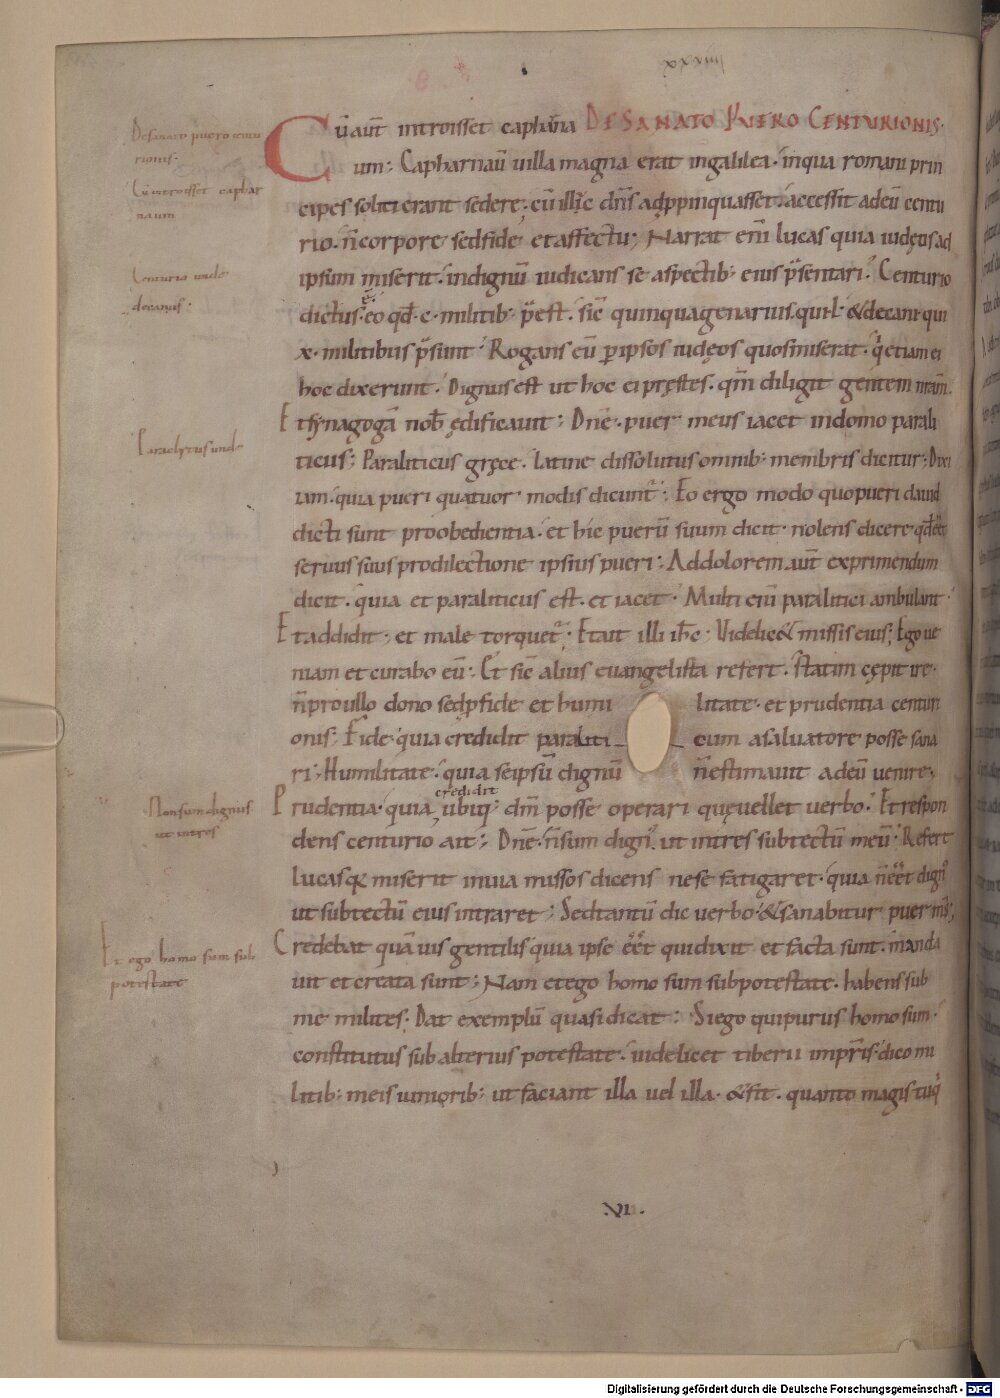 De sanato puero centu
rionis·
Cū introisset caphar
naum
Centurio unde
decanus:
Paraclytus unde
Non sum dignus
ut intres
Et ego homo sum sub
potestate
Cū aut̄ introisset capharna DE SANATO PUERO CENTURIONIS·
um: Capharnaū uilla magna erat ingalilea· inqua romani prin
cipes soliti erant sedere· cū illic dn̄s adppinquasset· accessit adeū centu
rio· n̄ corpore sed fide et affectu; Narrat eni lucas quia iudęos ad
ipsum miserit· indignū iudicans se aspectib: eius p̄sentari· Centurio
dictus· eo qd̄·c·militib: p̄est· sic̄ quinquagenarius qui·l· & decani qui
x·militibus p̄sunt· Rogans eū p ipsos iudęos quos miserat· q̄ etiam ei
hoc dixerunt· Dignus est ut hoc ei pręstes· qm̄ diligit gentem nrām·
Et synagogā nob̄ ędificauit: Dn̄e· puer meus iacet indomo parali
ticus: Paraliticus gręce· latine dissolutus omnib: membris dicitur: Dixi
iam· quia pueri quatuor modis dicunt̄: Eo ergo modo quo pueri dauid
dicti sunt pro obedientia· et hic puerū suum dicit· nolens dicere· qd̄ eēt
seruus suus pro dilectione ipsius pueri: Ad dolorem aut̄ exprimendum
dicit· quia et paraliticus est· et iacet· Multi eni paralitici ambulant·
Et addidit· et male torquet̄: Et ait illi ih̄c· Videlic& missis eius; Ego ue
niam et curabo eū: Et sic̄ alius euangelista refert· Statim cępit ire·
n̄ pro ullo dono sed p fide et humi litate· et prudentia centuri
onis: Fide· quia credidit paraliti cum a saluatore posse sana
ri; Humilitate· quia se ipsū dignū n̄ estimauit adeū uenire;
credidit
Prudentia· quia ubiq: dm̄ posse operari quę uellet uerbo· Et respon
dens centurio ait; Dn̄e· n̄ sum dign' ut intres sub tectū meū· Refert
lucas q miserit in uia missos dicens ne se fatigaret· quia n̄ eēt dign'
ut sub tectū eius intraret; Sed tantū dic uerbo· & sanabitur puer m̄s;
Credebat quā uis gentilis quia ipse eēt qui dixit et facta sunt· manda
uit et creata sunt; Nam et ego homo sum sub potestate· habens sub
me milites· Dat exemplū quasi dicat: Si ego qui purus homo sum·
constitutus sub alterius potestate· uidelicet tiberii impr̄is· dico mi
litib: meis uniorib: ut faciant illa uel illa· & fit· quanto magis tu q̄
·VII·
Digitalisierung gefördert durch die Deutsche Forschungsgemeinschaft - DFG